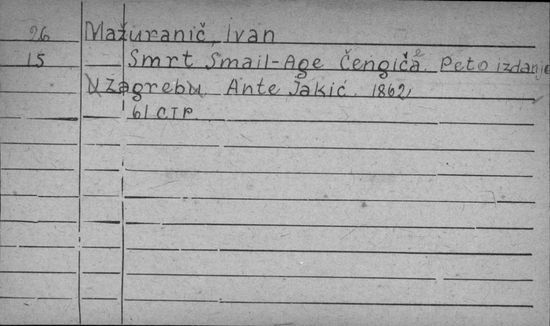 26 Mažuranič, Ivan
15 Smrt Smail-Age Čengiča. Peto izdanje
U Zagrebu Ante Jakić. 1862,
61 СТР.